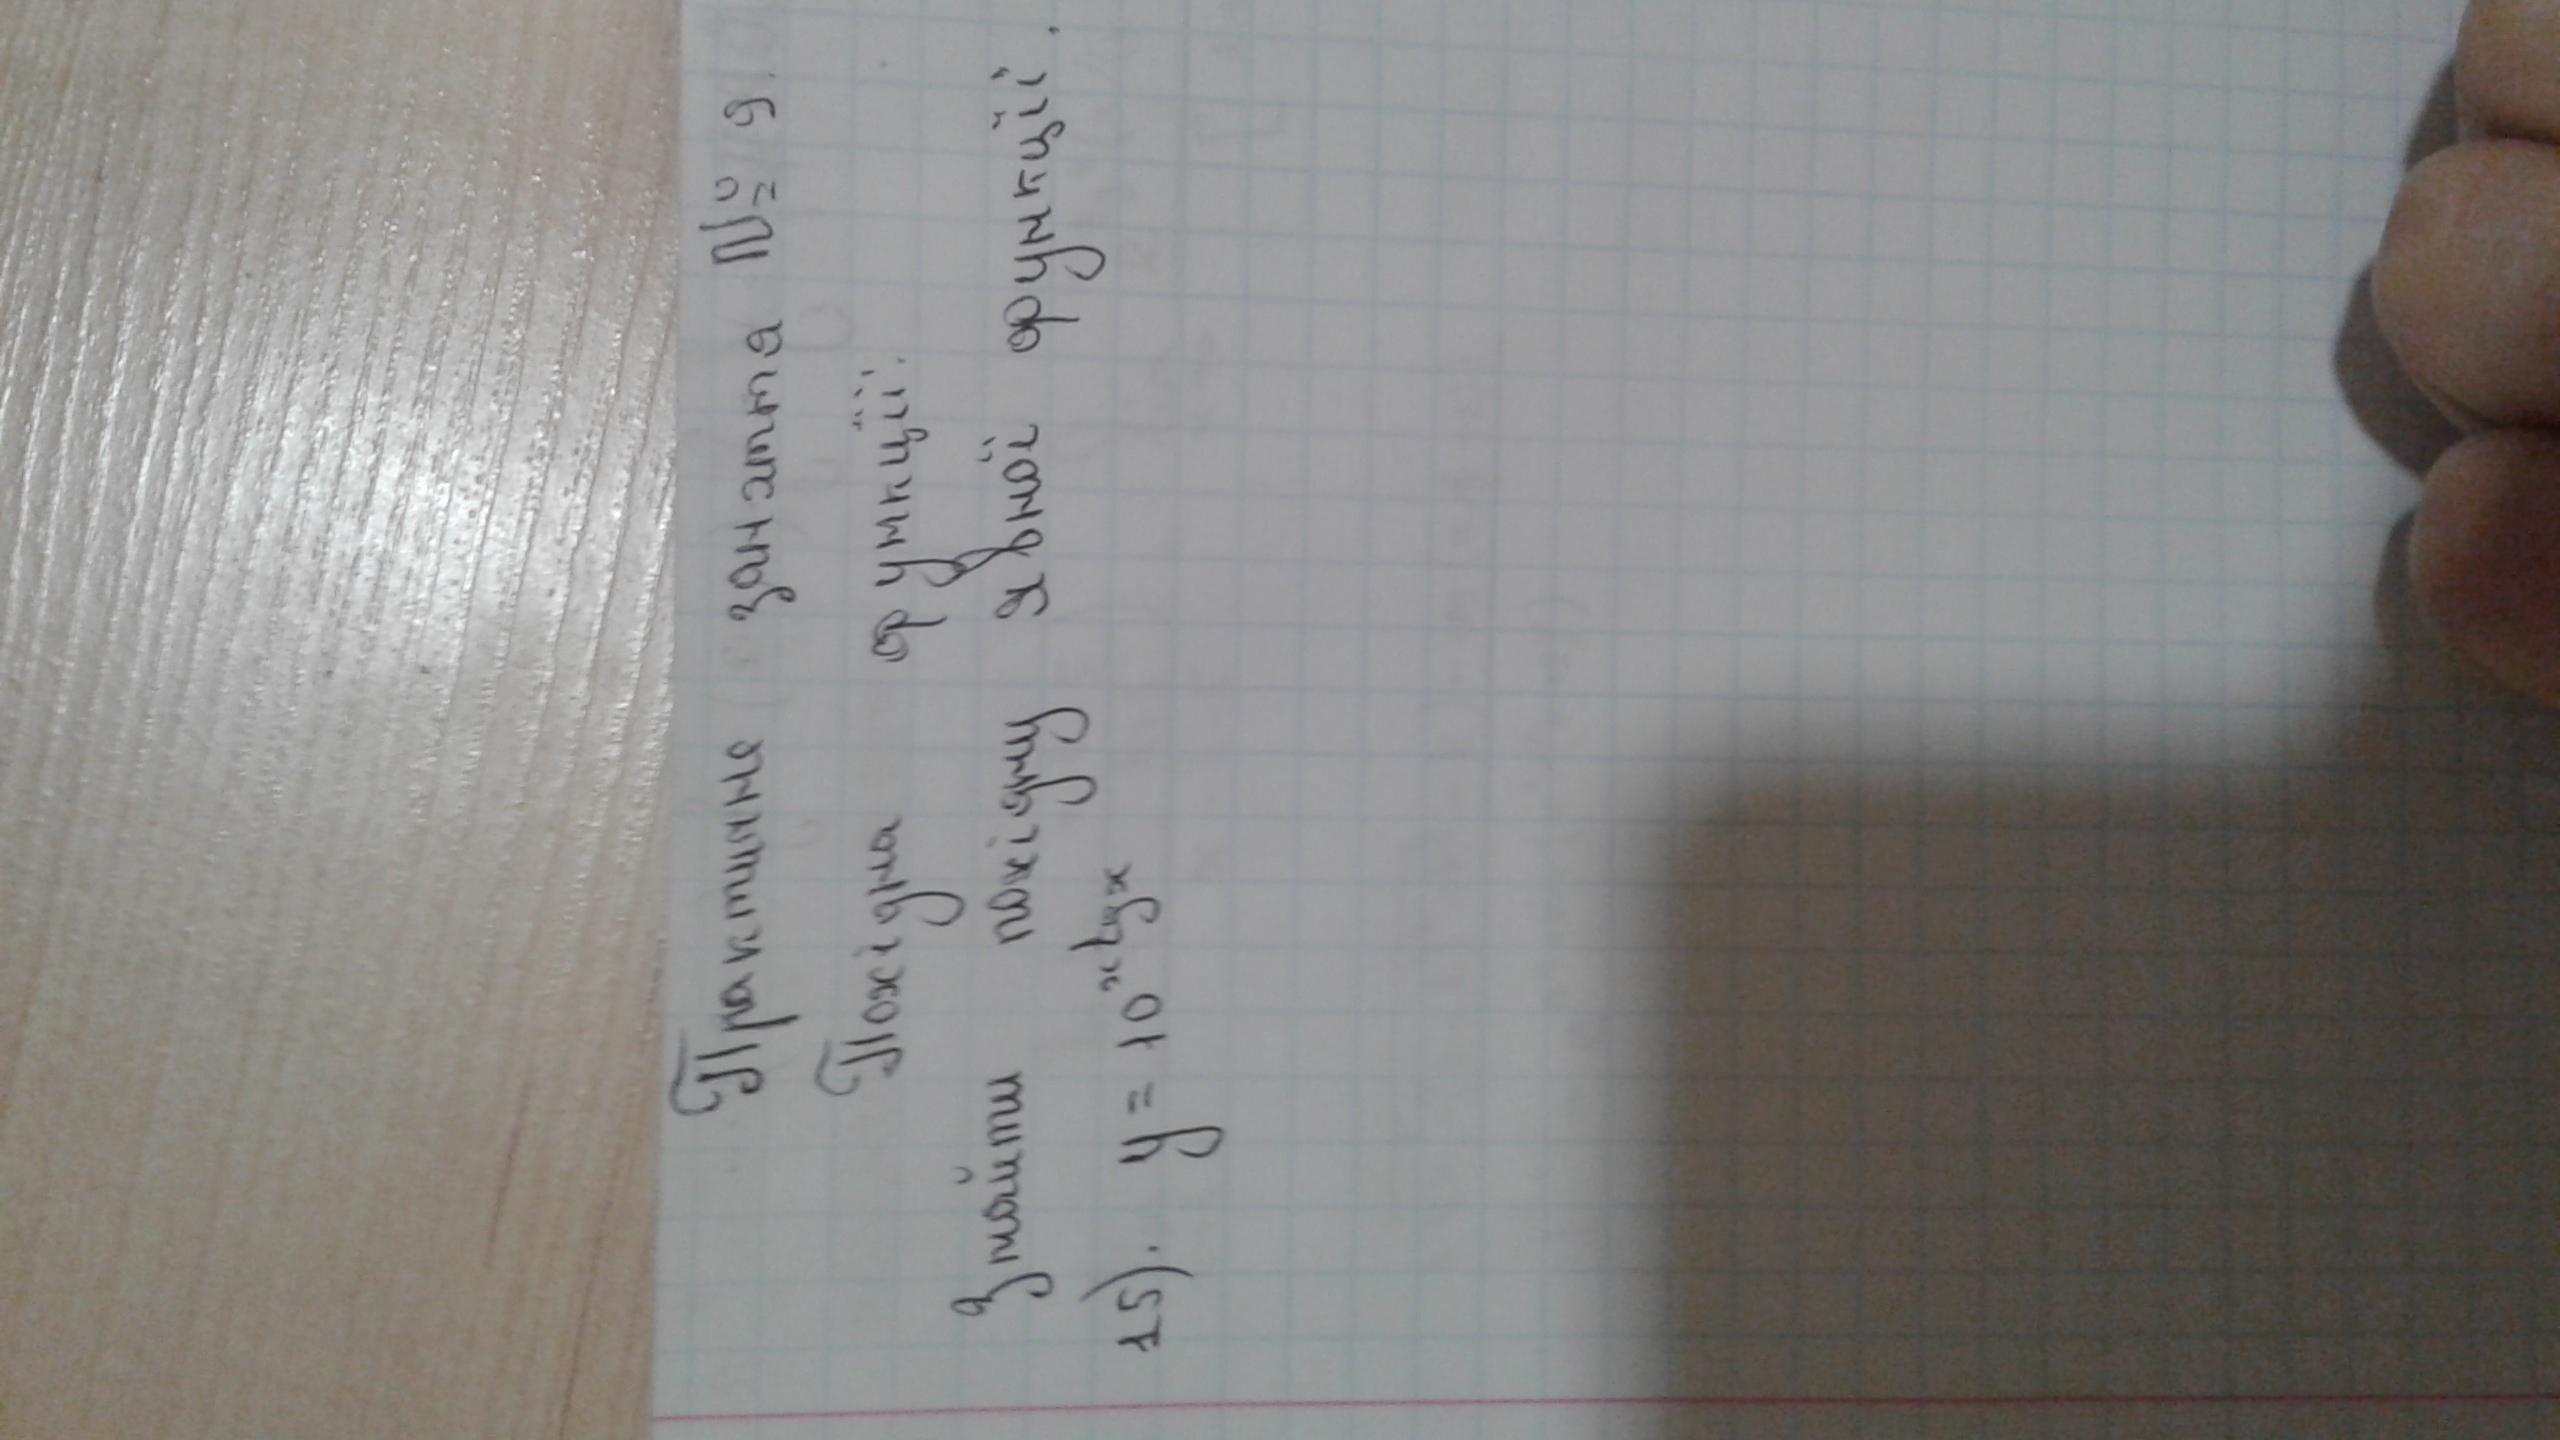 Практичне заняття № 9.
Похідна функції.
Знайти похідну явної функції.
15). y = 10^{x tg x}